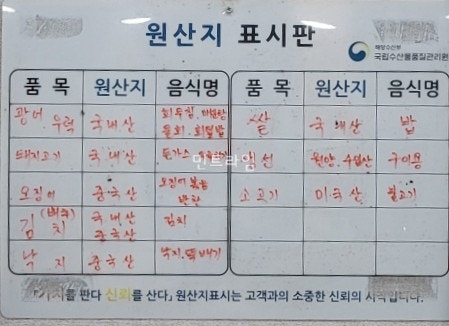 원산지 표시판
해양수산부
국립수산물품질관리원
품 목 원산지 음식명 품 목 원산지 음식명
광어, 우럭 국내산 회무침, 매운탕
물회, 회덮밥
쌀 국내산 밥
돼지고기 국내산 돈가스
생선 원양, 수입산 구이용
민트라임
오징어 중국산 오징어볶음
반찬
소고기 미국산 불고기
김치 (배추) 국내산 김치
중국산
낙지 중국산 낙지, 뚝배기
「가치를 판다 신뢰를 산다」 원산지표시는 고객과의 소중한 신뢰의 시작입니다.